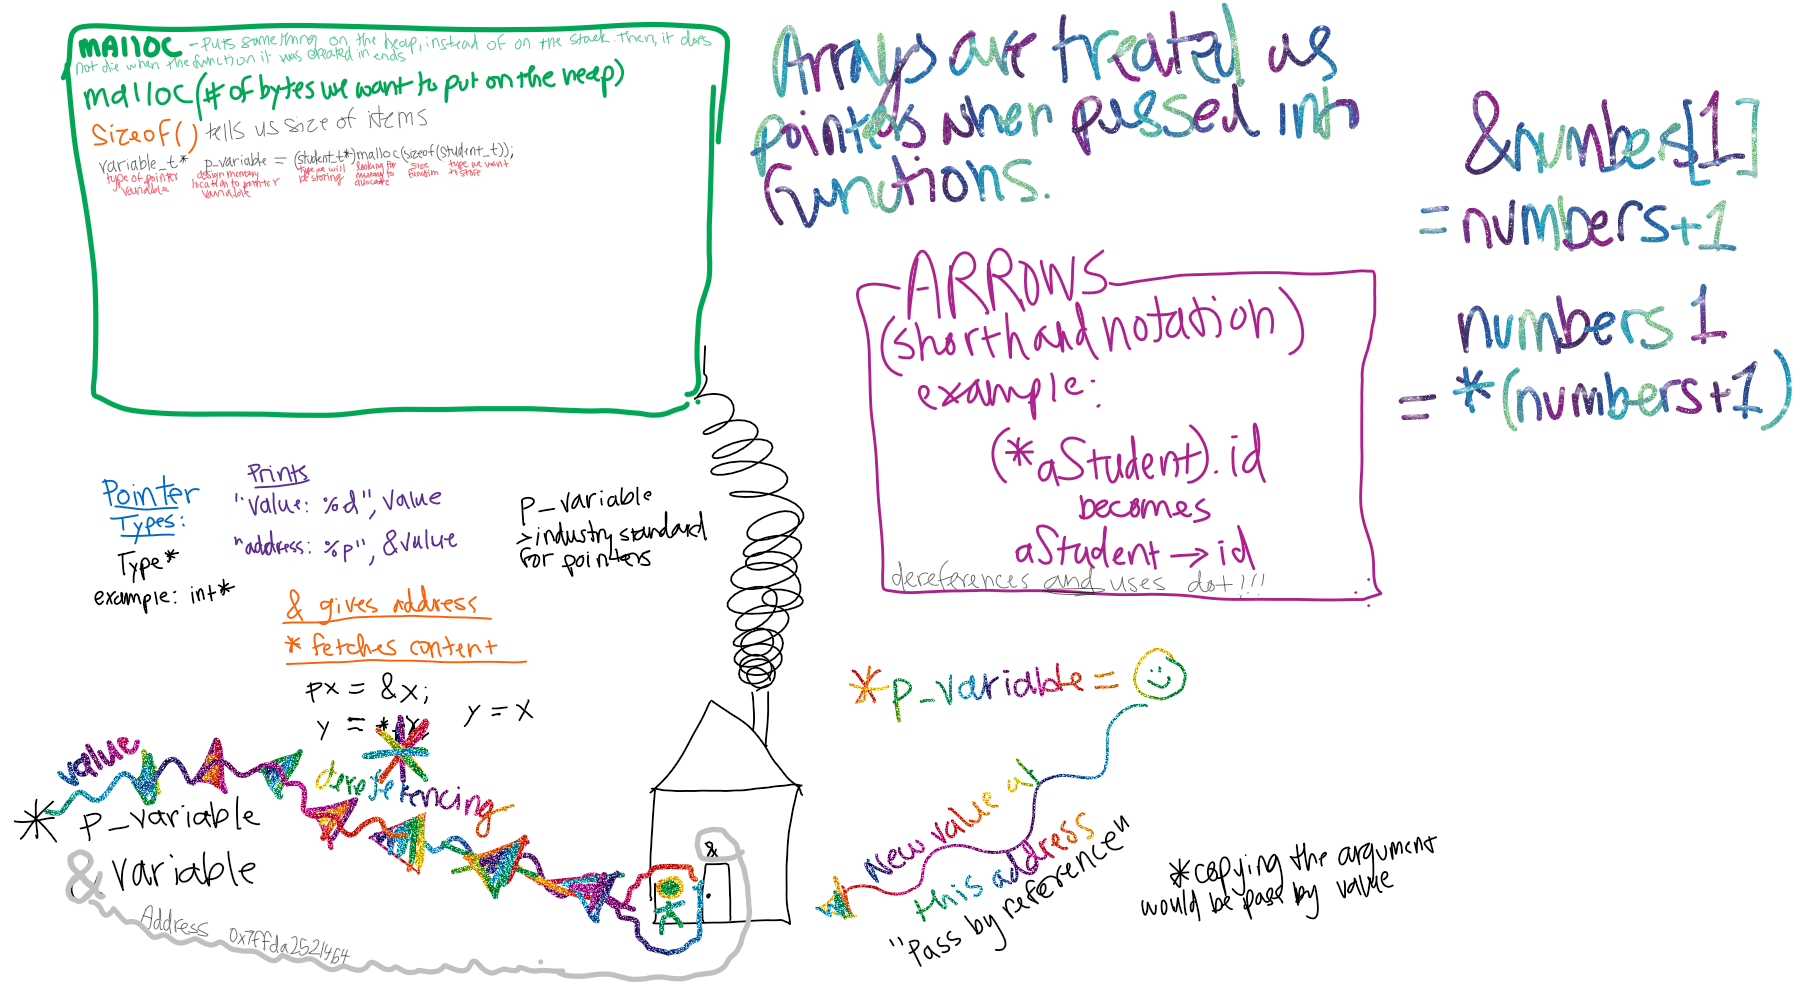 malloc - puts something on the heap, instead of on the stack. Then, it does
not die when the function it was created in ends
malloc(# of bytes we want to put on the heap)
sizeof() tells us size of items
variable_t* p_variable = (student_t*)malloc(sizeof(student_t));
type of pointer variable
design memory location to pointer variable
type we will be storing
looking for memory to allocate
size function
type we want to store
Arrays are treated as
pointers when passed into
functions.
&numbers[1]
= numbers+1
numbers 1
= *(numbers+1)
ARROWS
(shorthand notation)
example:
(*aStudent).id
becomes
aStudent→id
dereferences and uses dot!!!
Pointer
Types:
Type*
example: int*
Prints
"value: %d", value
"address: %p", &value
p_variable
>industry standard
for pointers
& gives address
* fetches content
px = &x;
y = *
y = x
*
value
dereferencing
* p_variable
& variable
Address 0x7ffda2521464
&
*p_variable =
New value at
this address
"Pass by reference
*copying the argument
would be pass by value